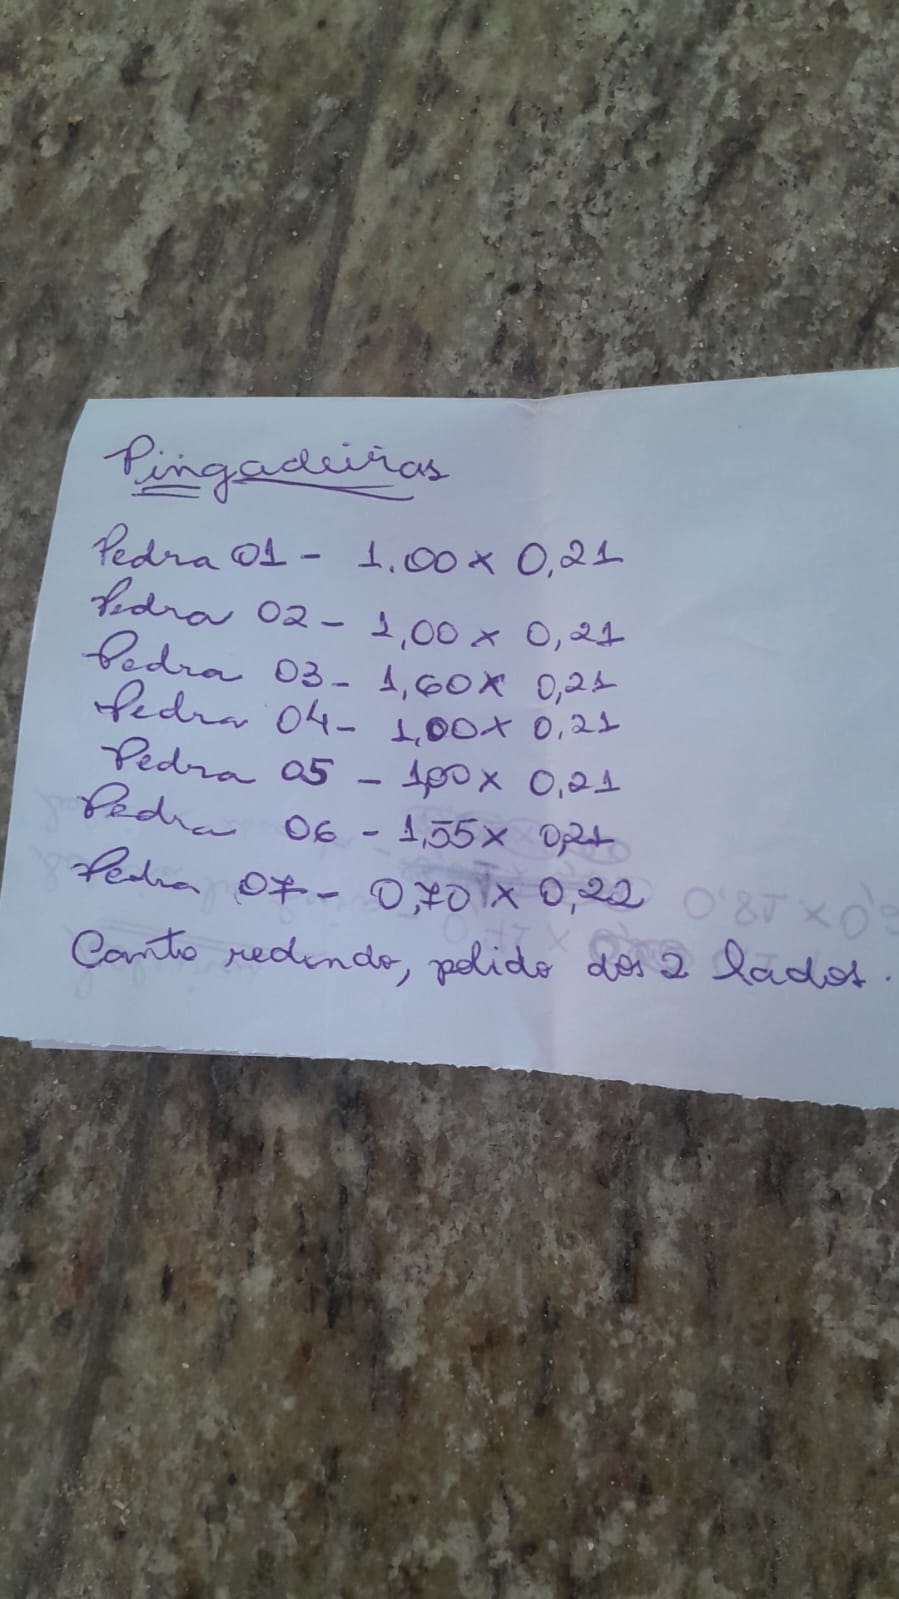 Pingadeiras
Pedra 01 - 1.00 x 0,21
Pedra 02 - 1,00 x 0,21
Pedra 03 - 1,60 x 0,21
Pedra 04 - 1,00 x 0,21
Pedra 05 - 1,00 x 0,21
Pedra 06 - 1,55 x 0,21
Pedra 07 - 0,70 x 0,22
Canto redondo, polido dos 2 lados.